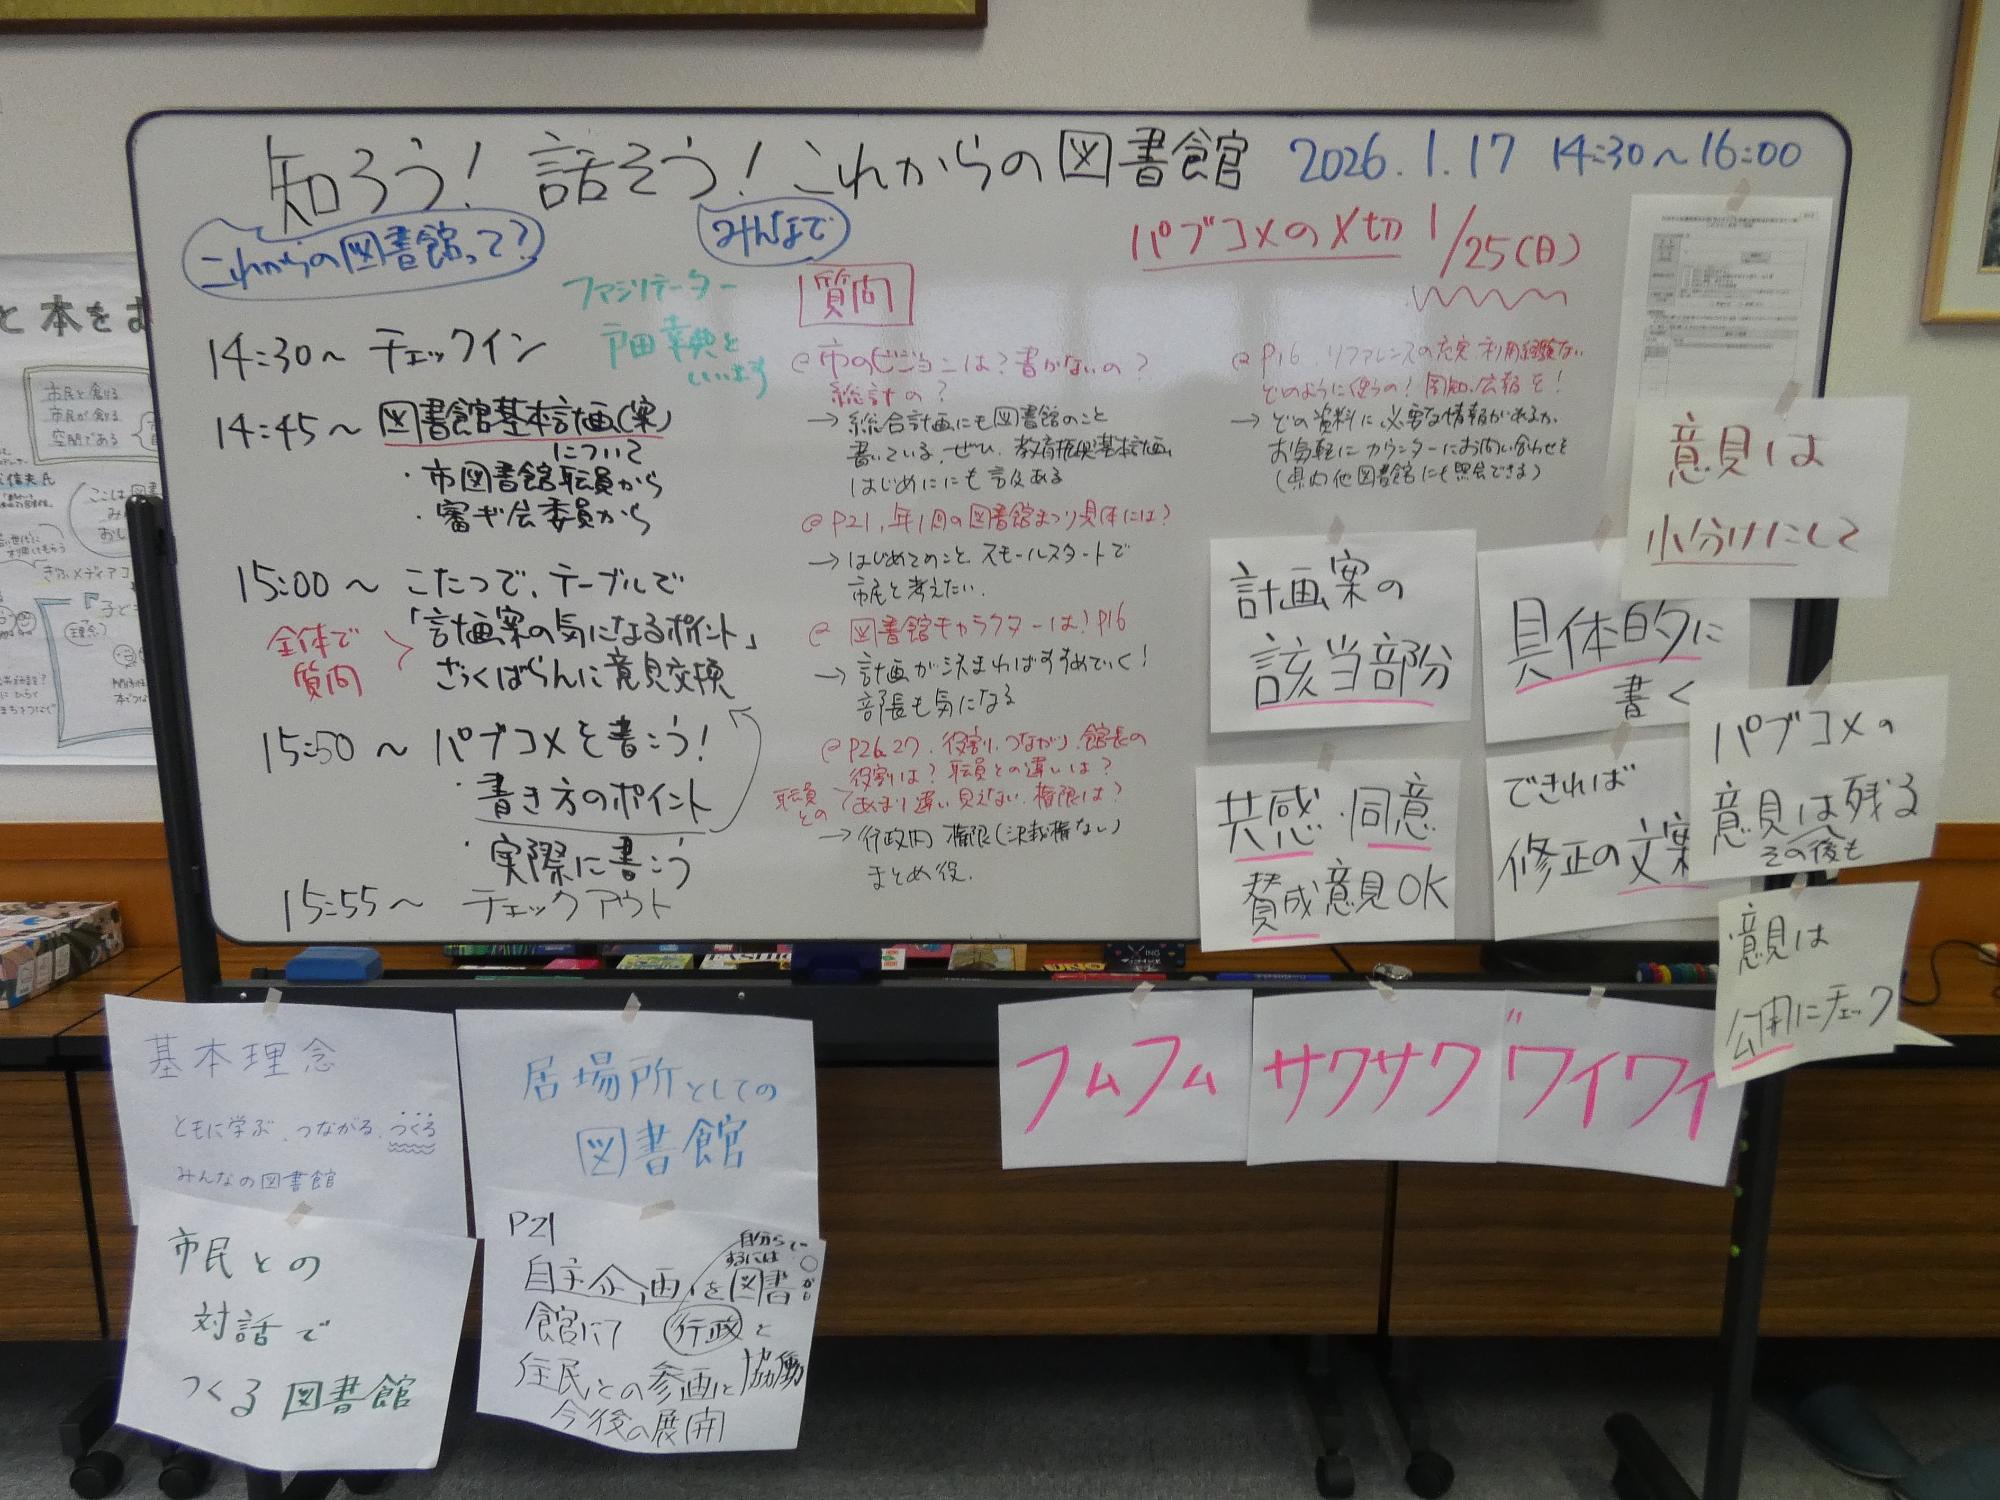 知ろう！話そう！これからの図書館 2026.1.17 14:30～16:00
これからの図書館って？
みんなで
パブコメの〆切 1/25(日)
ファシリテーター
戸田幸典と
いいます
14:30～ チェックイン
14:45～ 図書館基本計画(案)
について
・市図書館職員から
・審ギ会委員から
15:00～ こたつで、テーブルで
「計画案の気になるポイント」
ざっくばらんに意見交換
全体で
質問
15:50～ パブコメを書こう！
・書き方のポイント
・実際に書こう
15:55～ チェックアウト
質問
@市のビジョンは？書かないの？
総計の？
→総合計画にも図書館のこと
書いている。ぜひ、教育振興基本計画
はじめににも言及ある
@P21,年1回の図書館まつり具体には？
→はじめてのこと スモールスタートで
市民と考えたい。
@図書館キャラクターは！P16
→計画が決まればすすめていく！
部長も気になる
@P26.27.役割、つながり、館長の
役割は？職員との違いは？
職員
との
あまり違い見えない。権限は？
→行政内 権限(決裁権ない)
まとめ役。
@P16.リファレンスの充実、利用経験ない
どのように使うの！周知、広報を！
→どの資料に必要な情報があるか、
お気軽にカウンターにお問い合わせを
(県内他図書館にも照会できる)
意見は
小分けにして
計画案の
該当部分
具体的に
書く
共感・同意
賛成意見OK
できれば
修正の文案
パブコメの
意見は残る
その後も
意見は
公開にチェック
フムフム
サクサク
ワイワイ
基本理念
ともに学ぶ、つながる、つくる
みんなの図書館
市民との
対話で
つくる図書館
居場所としての
図書館
P21
自主企画を図書
館にて 行政と
住民との参画と協働
今後の展開
と本をむ
市民と創る
市民が創る
空間である